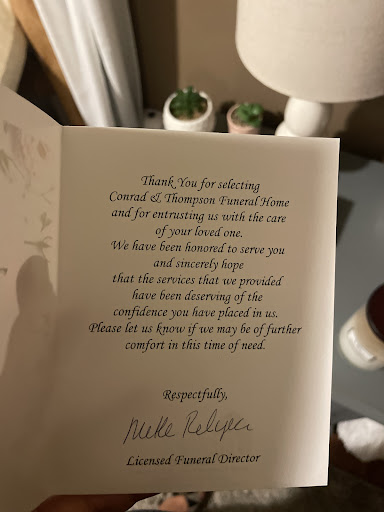 Thank You for selecting
Conrad & Thompson Funeral Home
and for entrusting us with the care
of your loved one.
We have been honored to serve you
and sincerely hope
that the services that we provided
have been deserving of the
confidence you have placed in us.
Please let us know if we may be of further
comfort in this time of need.
Respectfully,
Licensed Funeral Director